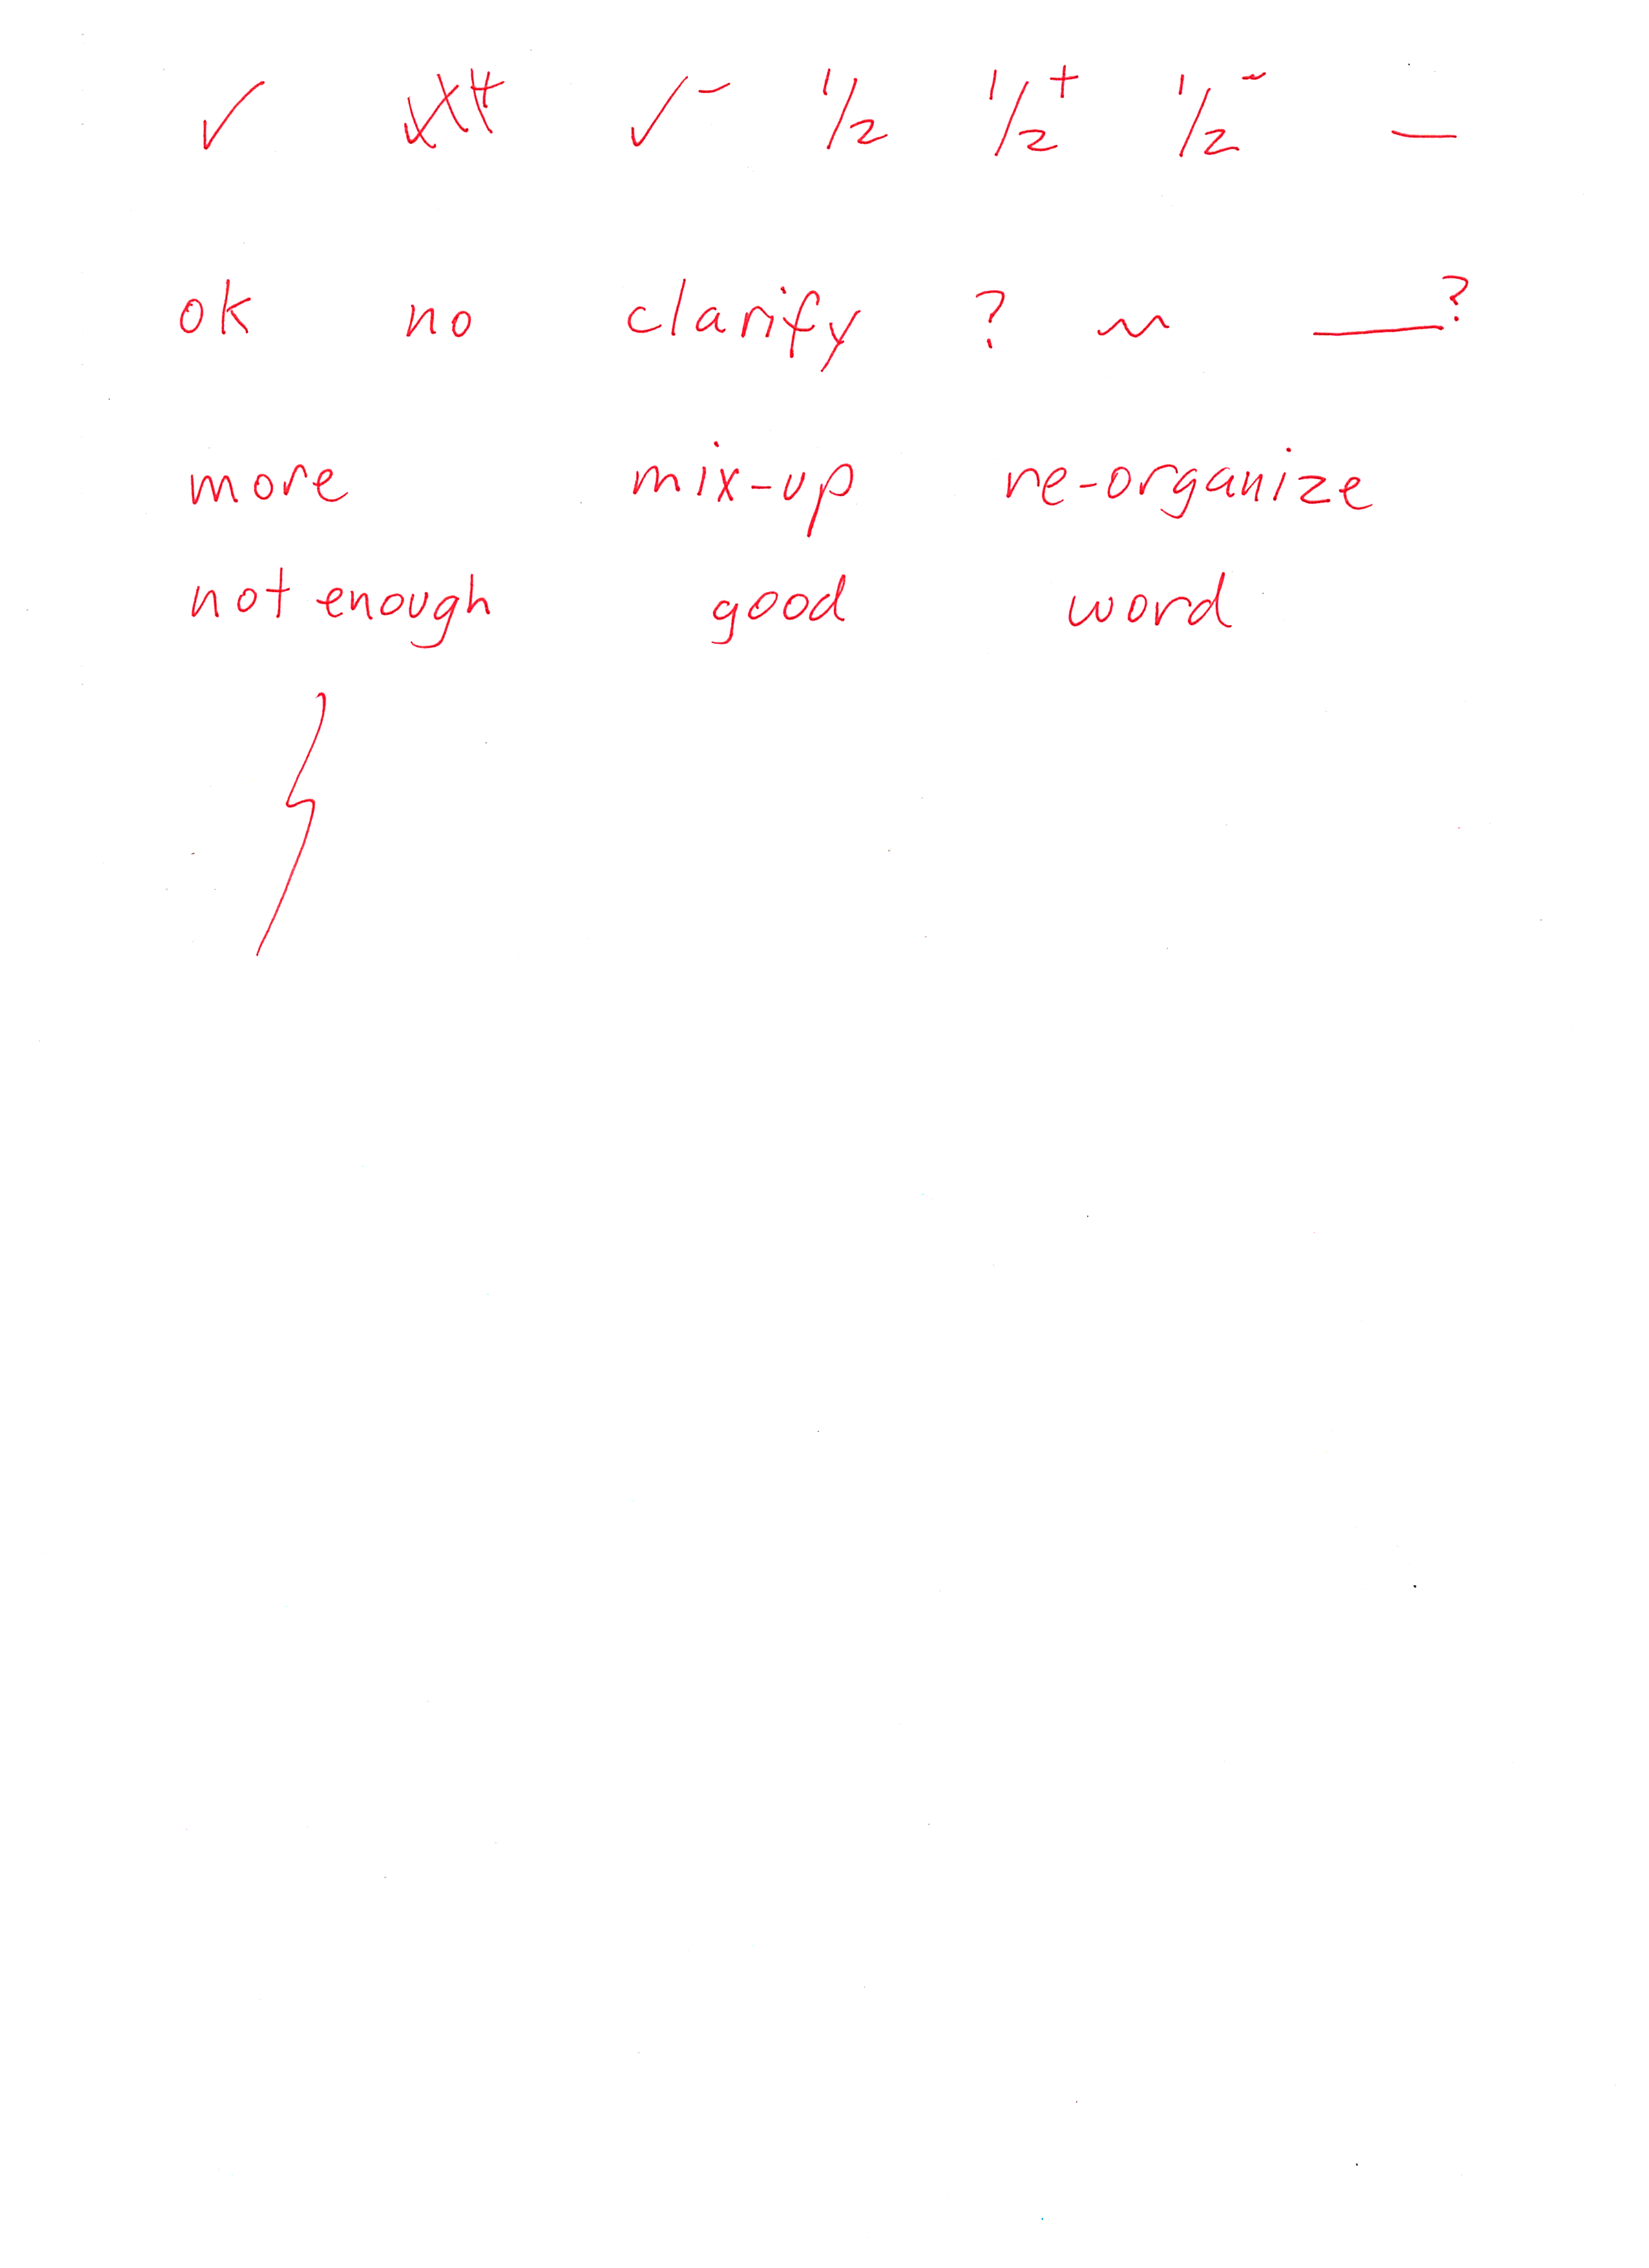 ✓ ✓- 1/2 1/2+ 1/2- —
ok no clarify ? ~ —?
more mix-up re-organize
not enough good word